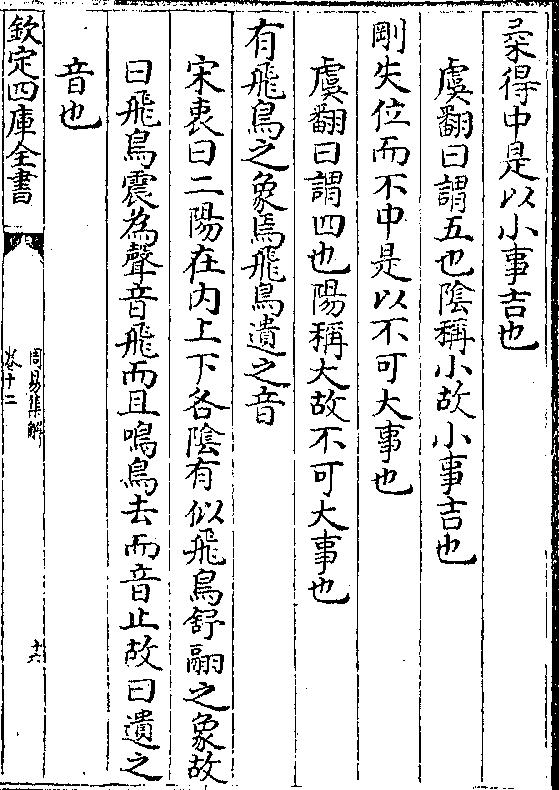 柔得中是以小事吉也
虞翻曰謂五也陰稱小故小事吉也
剛失位而不中是以不可大事也
虞翻曰謂四也陽稱大故不可大事也
有飛鳥之象焉飛鳥遺之音
宋衷曰二陽在内上下各陰有似飛鳥舒翮之象故
曰飛鳥震為聲音飛而且鳴鳥去而音止故曰遺之
音也
欽定四庫全書
周易集解
卷十二
十六